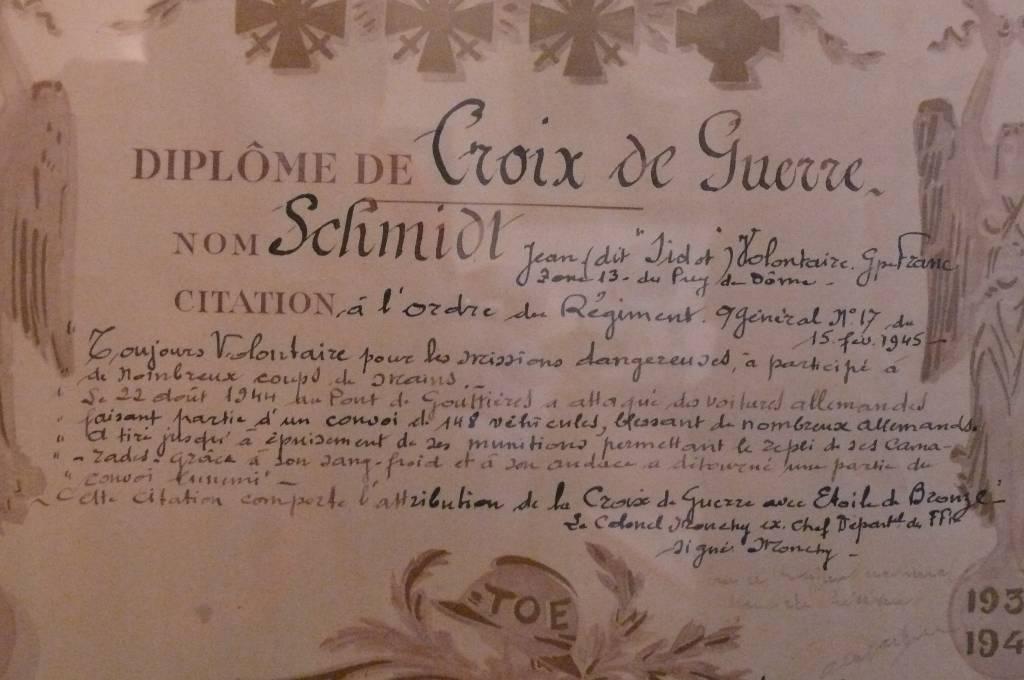 DIPLÔME DE Croix de Guerre
NOM Schmidt Jean (dit "Jidot") Volontaire. Gpe Franc
Zone 13 - du Puy de Dôme -
CITATION, à l'ordre du Régiment. O Général N° 17 du
15. fév. 1945 -
Toujours Volontaire pour les missions dangereuses, à participé à
" de nombreux coups de mains.
" Le 22 août 1944 au Pont de Gouttières a attaqué des voitures allemandes
" faisant partie d'un convoi de 148 véhicules, blessant de nombreux allemands.
" A tiré jusqu'à épuisement de ses munitions, permettant le repli de ses cama-
" - rades. Grâce à son sang-froid et à son audace a détourné une partie du
" convoi Ennemi -
Cette Citation comporte l'attribution de la Croix de Guerre avec Etoile de Bronze -
Le Colonel Monchy ex. Chef Départtal des FFI
signé Monchy -
TOE
193
194